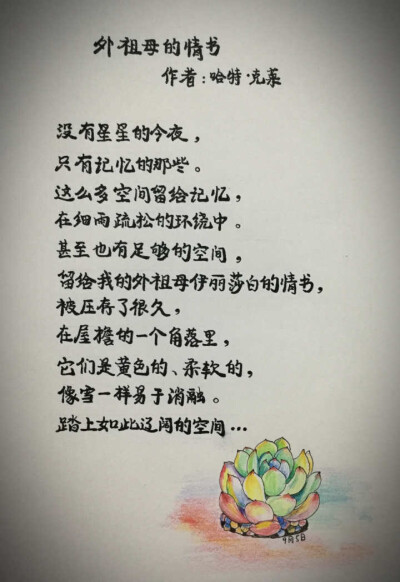 外祖母的情书
作者:哈特·克莱
没有星星的今夜,
只有记忆的那些。
这么多空间留给记忆,
在细雨疏松的环绕中。
甚至也有足够的空间,
留给我的外祖母伊丽莎白的情书,
被压存了很久,
在屋檐的一个角落里,
它们是黄色的、柔软的,
像雪一样易于消融。
踏上如此辽阔的空间…
9月5日